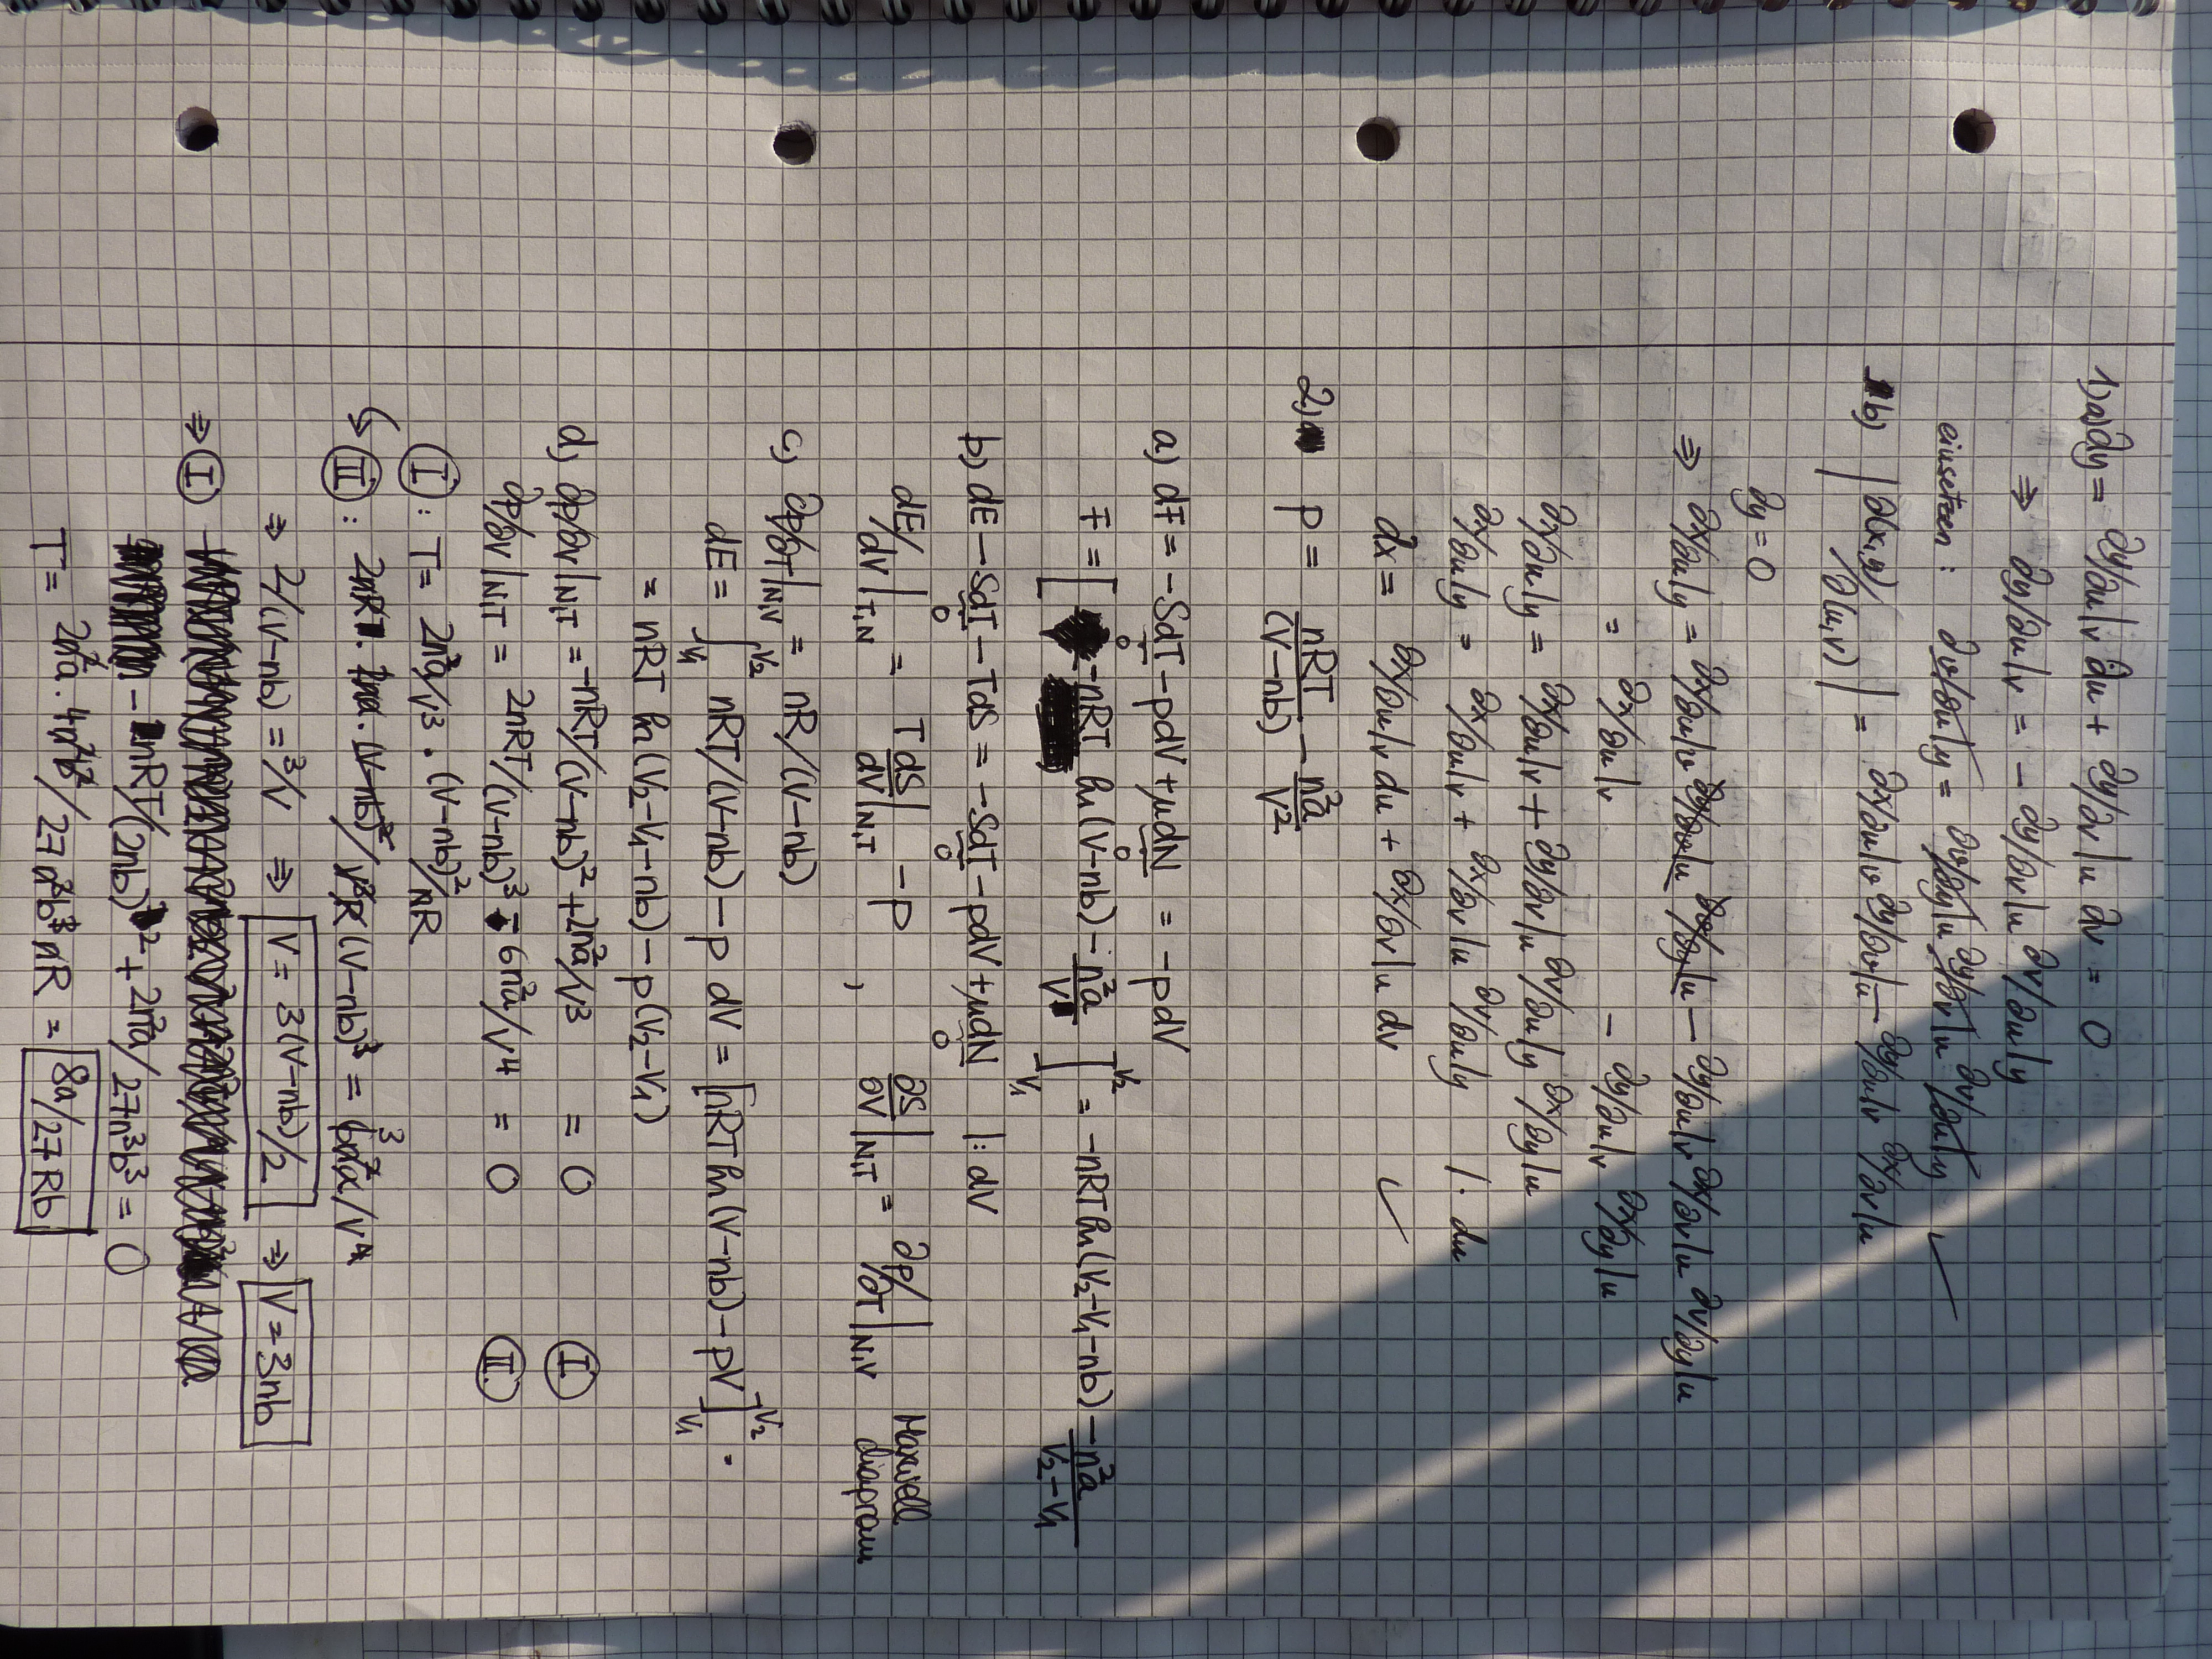 1) a) ∂y = ∂y/∂u|v ∂u + ∂y/∂v|u ∂v = 0
⇒ ∂y/∂u|v = - ∂y/∂v|u ∂v/∂u|y
einsetzen: ∂v/∂u|y = ∂v/∂y|u ∂y/∂v|u ∂v/∂u|y ✓
b) |∂(x,y)/∂(u,v)| = ∂x/∂u|v ∂y/∂v|u - ∂y/∂u|v ∂x/∂v|u
∂y = 0
⇒ ∂x/∂u|y = ∂x/∂u|v ∂y/∂v|u ∂v/∂y|u - ∂y/∂u|v ∂x/∂v|u ∂v/∂y|u
= ∂x/∂u|v - ∂y/∂u|v ∂x/∂y|u
∂x/∂u|y = ∂x/∂u|v + ∂y/∂v|u ∂v/∂u|y ∂x/∂y|u
∂x/∂u|y = ∂x/∂u|v + ∂x/∂v|u ∂v/∂u|y |· du
dx = ∂x/∂u|v du + ∂x/∂v|u dv ✓
2) p = nRT/(V-nb) - n²a/V²
a) dF = -SdT - pdV + μdN = -pdV
0 0
F = [-nRT ln(V-nb) - n²a/V]V₁V₂ = -nRT ln(V₂-V₁-nb) - n²a/V₂-V₁
b) dE - SdT - TdS = -SdT - pdV + μdN |: dV
0 0 0
dE/dV|T,N = TdS/dV|N,T - p , ∂S/∂V|N,T = ∂p/∂T|N,V Maxwell diagram
c) ∂p/∂T|N,V = nR/(V-nb)
dE = ∫V₁V₂ nRT/(V-nb) - p dV = [nRT ln(V-nb) - pV]V₁V₂ .
= nRT ln(V₂-V₁-nb) - p(V₂-V₁)
d) ∂p/∂V|N,T = -nRT/(V-nb)² + 2n²a/V³ = 0 I.
∂p/∂V|N,T = 2nRT/(V-nb)³ - 6n²a/V⁴ = 0 II.
I: T = 2n²a/V³ · (V-nb)²/nR
↳ II: 2nR · (V-nb)²/V³R (V-nb)³ = 6n²a/V⁴
⇒ 2/(V-nb) = 3/V ⇒ V = 3(V-nb)/2 ⇒ V = 3nb
⇒ I
-nRT/(2nb)² + 2n²a/27n³b³ = 0
T = 2n²a · 4n²b²/27n³b³nR = 8a/27Rb